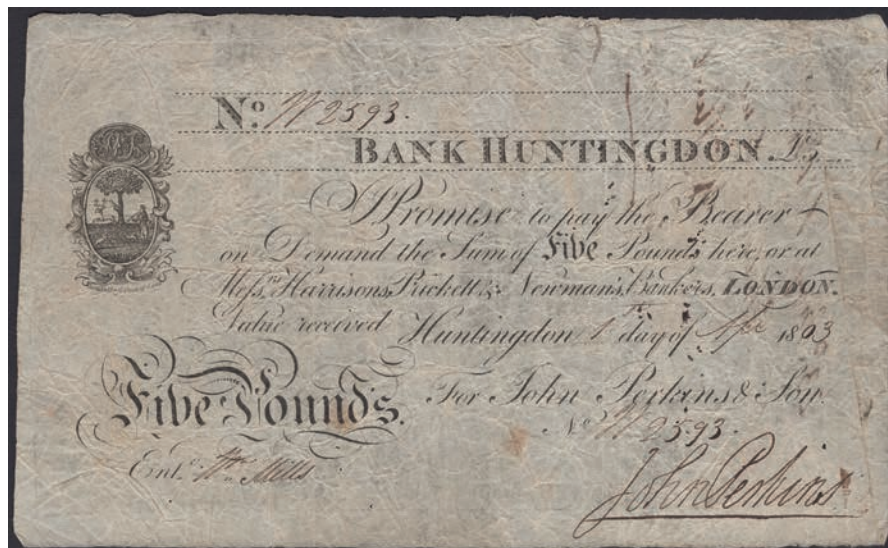 No. W 2593.
BANK HUNTINGDON £5
I Promise to pay the Bearer
on Demand the Sum of Five Pounds here, or at
Messrs. Harrisons, Prickett & Newman's, Bankers, LONDON.
Value received Huntingdon 1 day of 1803
Five Pounds. For John Perkins & Son.
No. W 2593.
Entd. Wm. Mills
John Perkins